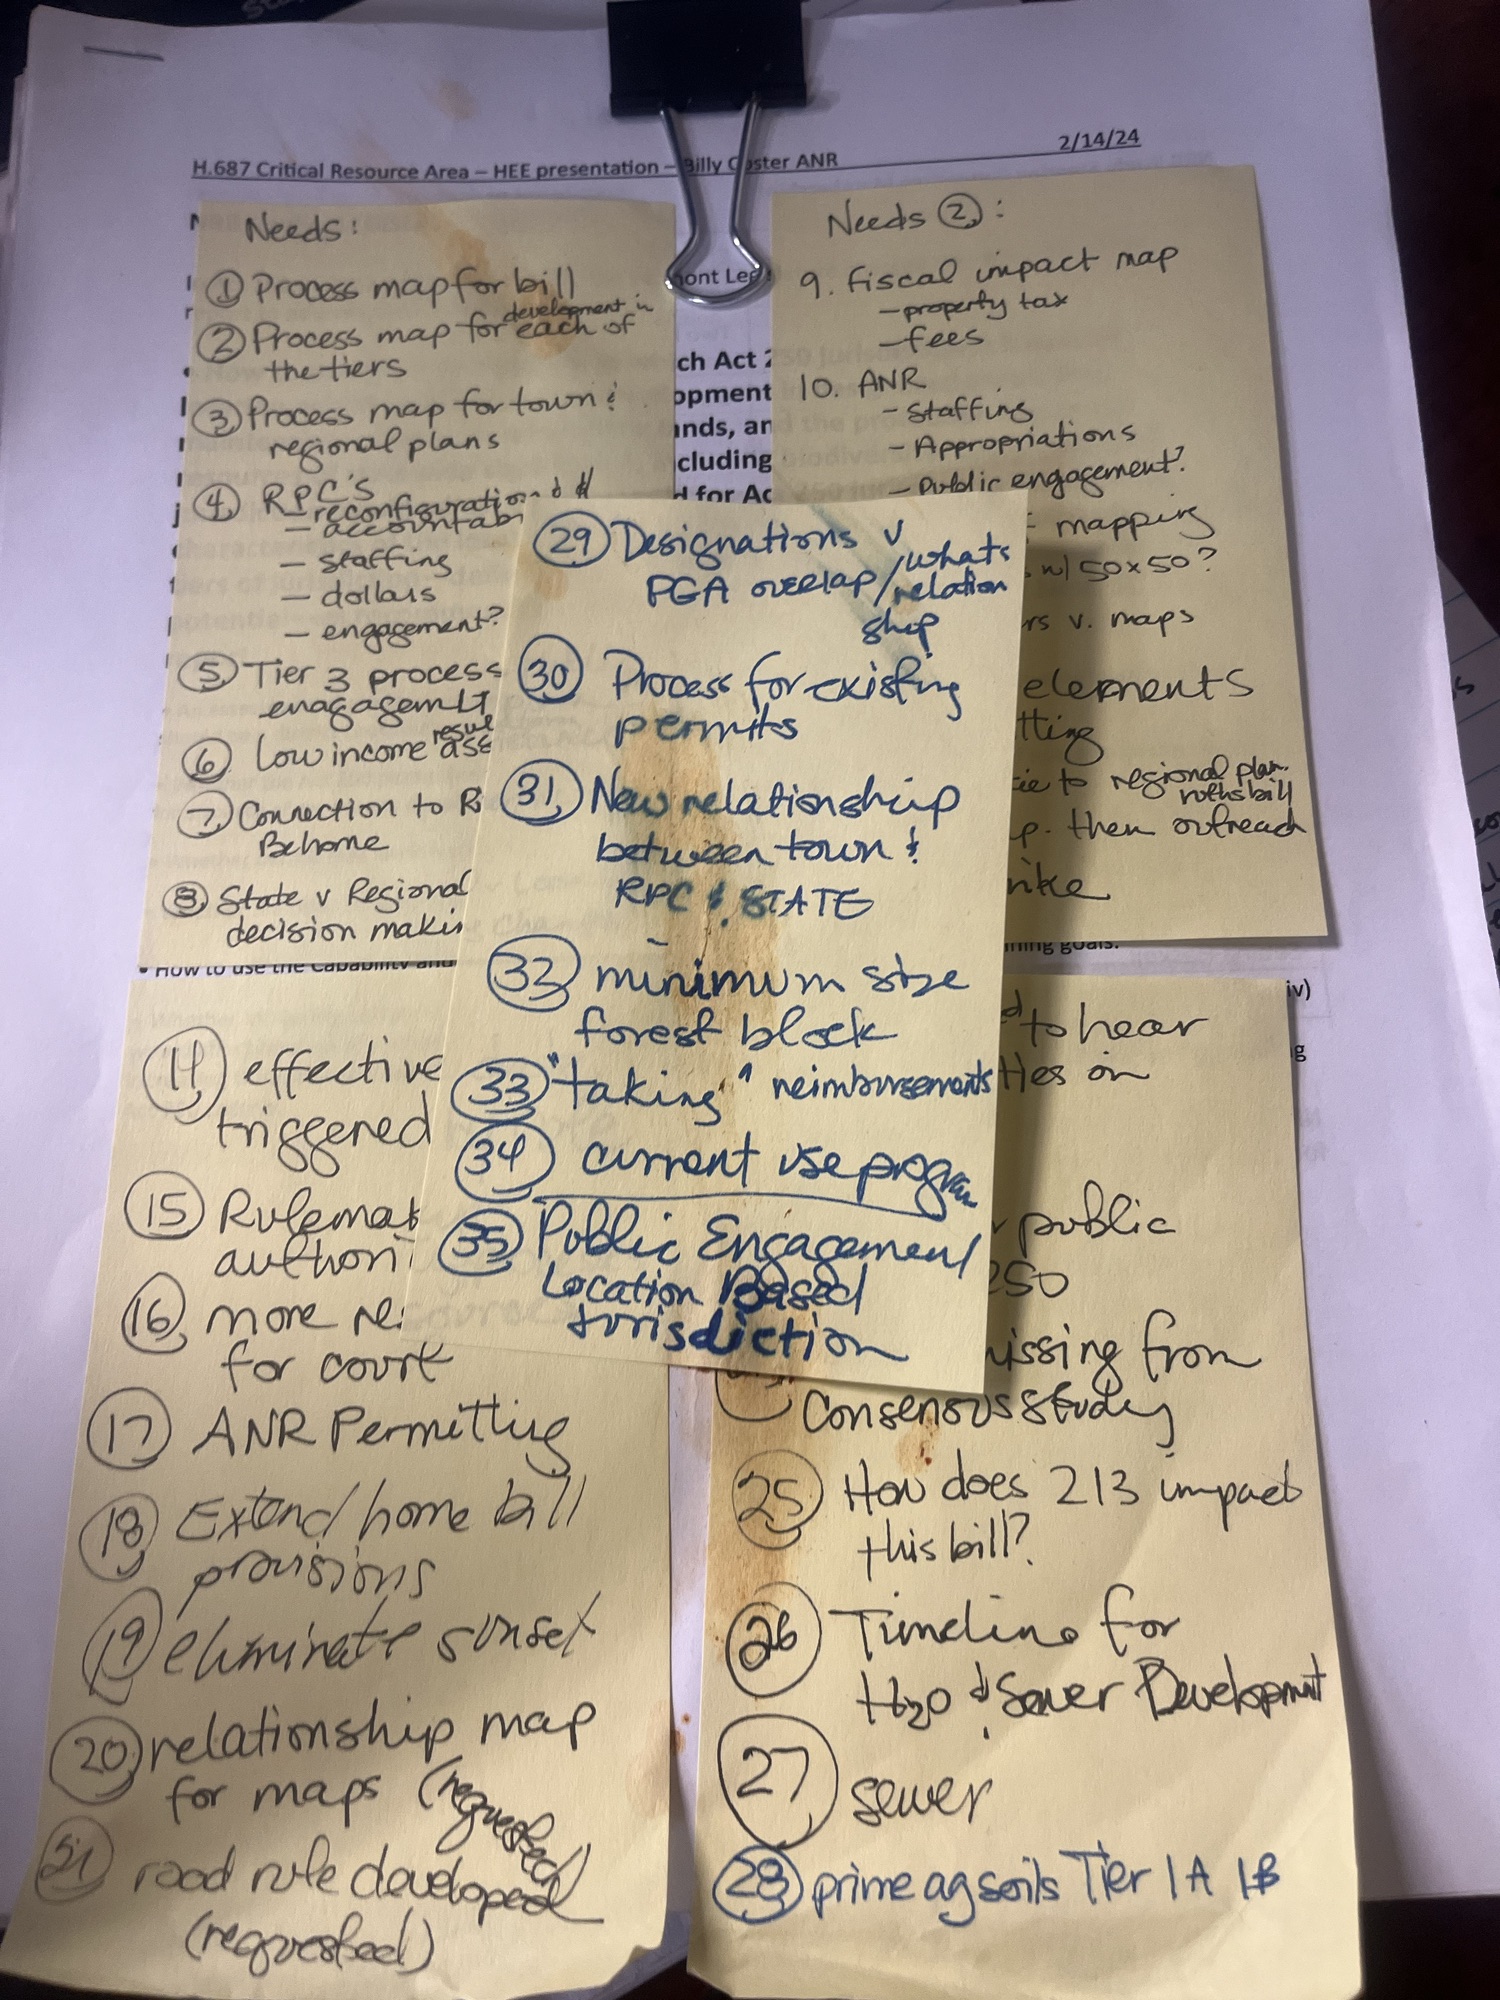 H.687 Critical Resource Area – HEE presentation – Billy Coster ANR
2/14/24
Needs:
① Process map for bill
② Process map for development in each of
the tiers
③ Process map for town &
regional plans
④ RPC's
– reconfiguration &
– accountabi
– staffing
– dollars
– engagement?
⑤ Tier 3 process
enagagemLT
⑥ Low income
⑦ Connection to
Behome
⑧ State v Regional
decision makin
Needs ②:
9. fiscal impact map
– property tax
– fees
10. ANR
– Staffing
– Appropriations
– Public engagement?
mapping
w/ 50x50?
rs v. maps
elements
tting
tie to regional plan.
p. then outreach
ont Leg
ch Act 2
opment
nds, an
cluding
d for Ac
• How to use the Capability and
ning goals.
iv)
g
effective
triggered
⑮ Rulemak
authori
⑯ more re
for court
⑰ ANR Permitting
⑱ Extend home bill
provisions
⑲ eliminate sunset
⑳ relationship map
for maps (requested)
㉑ road rule developed
(requested)
㉙ Designations v
PGA overlap/whats
relation
ship
㉚ Process for existing
permits
㉛ New relationship
between town &
RPC & STATE
㉜ minimum size
forest block
㉝ "taking" reimbursements
㉞ current use program
㉟ Public Engagement
Location Based
Jurisdiction
to hear
ties on
public
250
issing from
consensus study
㉕ How does 213 impact
this bill?
㉖ Timeline for
H20 & Sewer Development
㉗ sewer
㉘ prime ag soils Tier 1A 1B